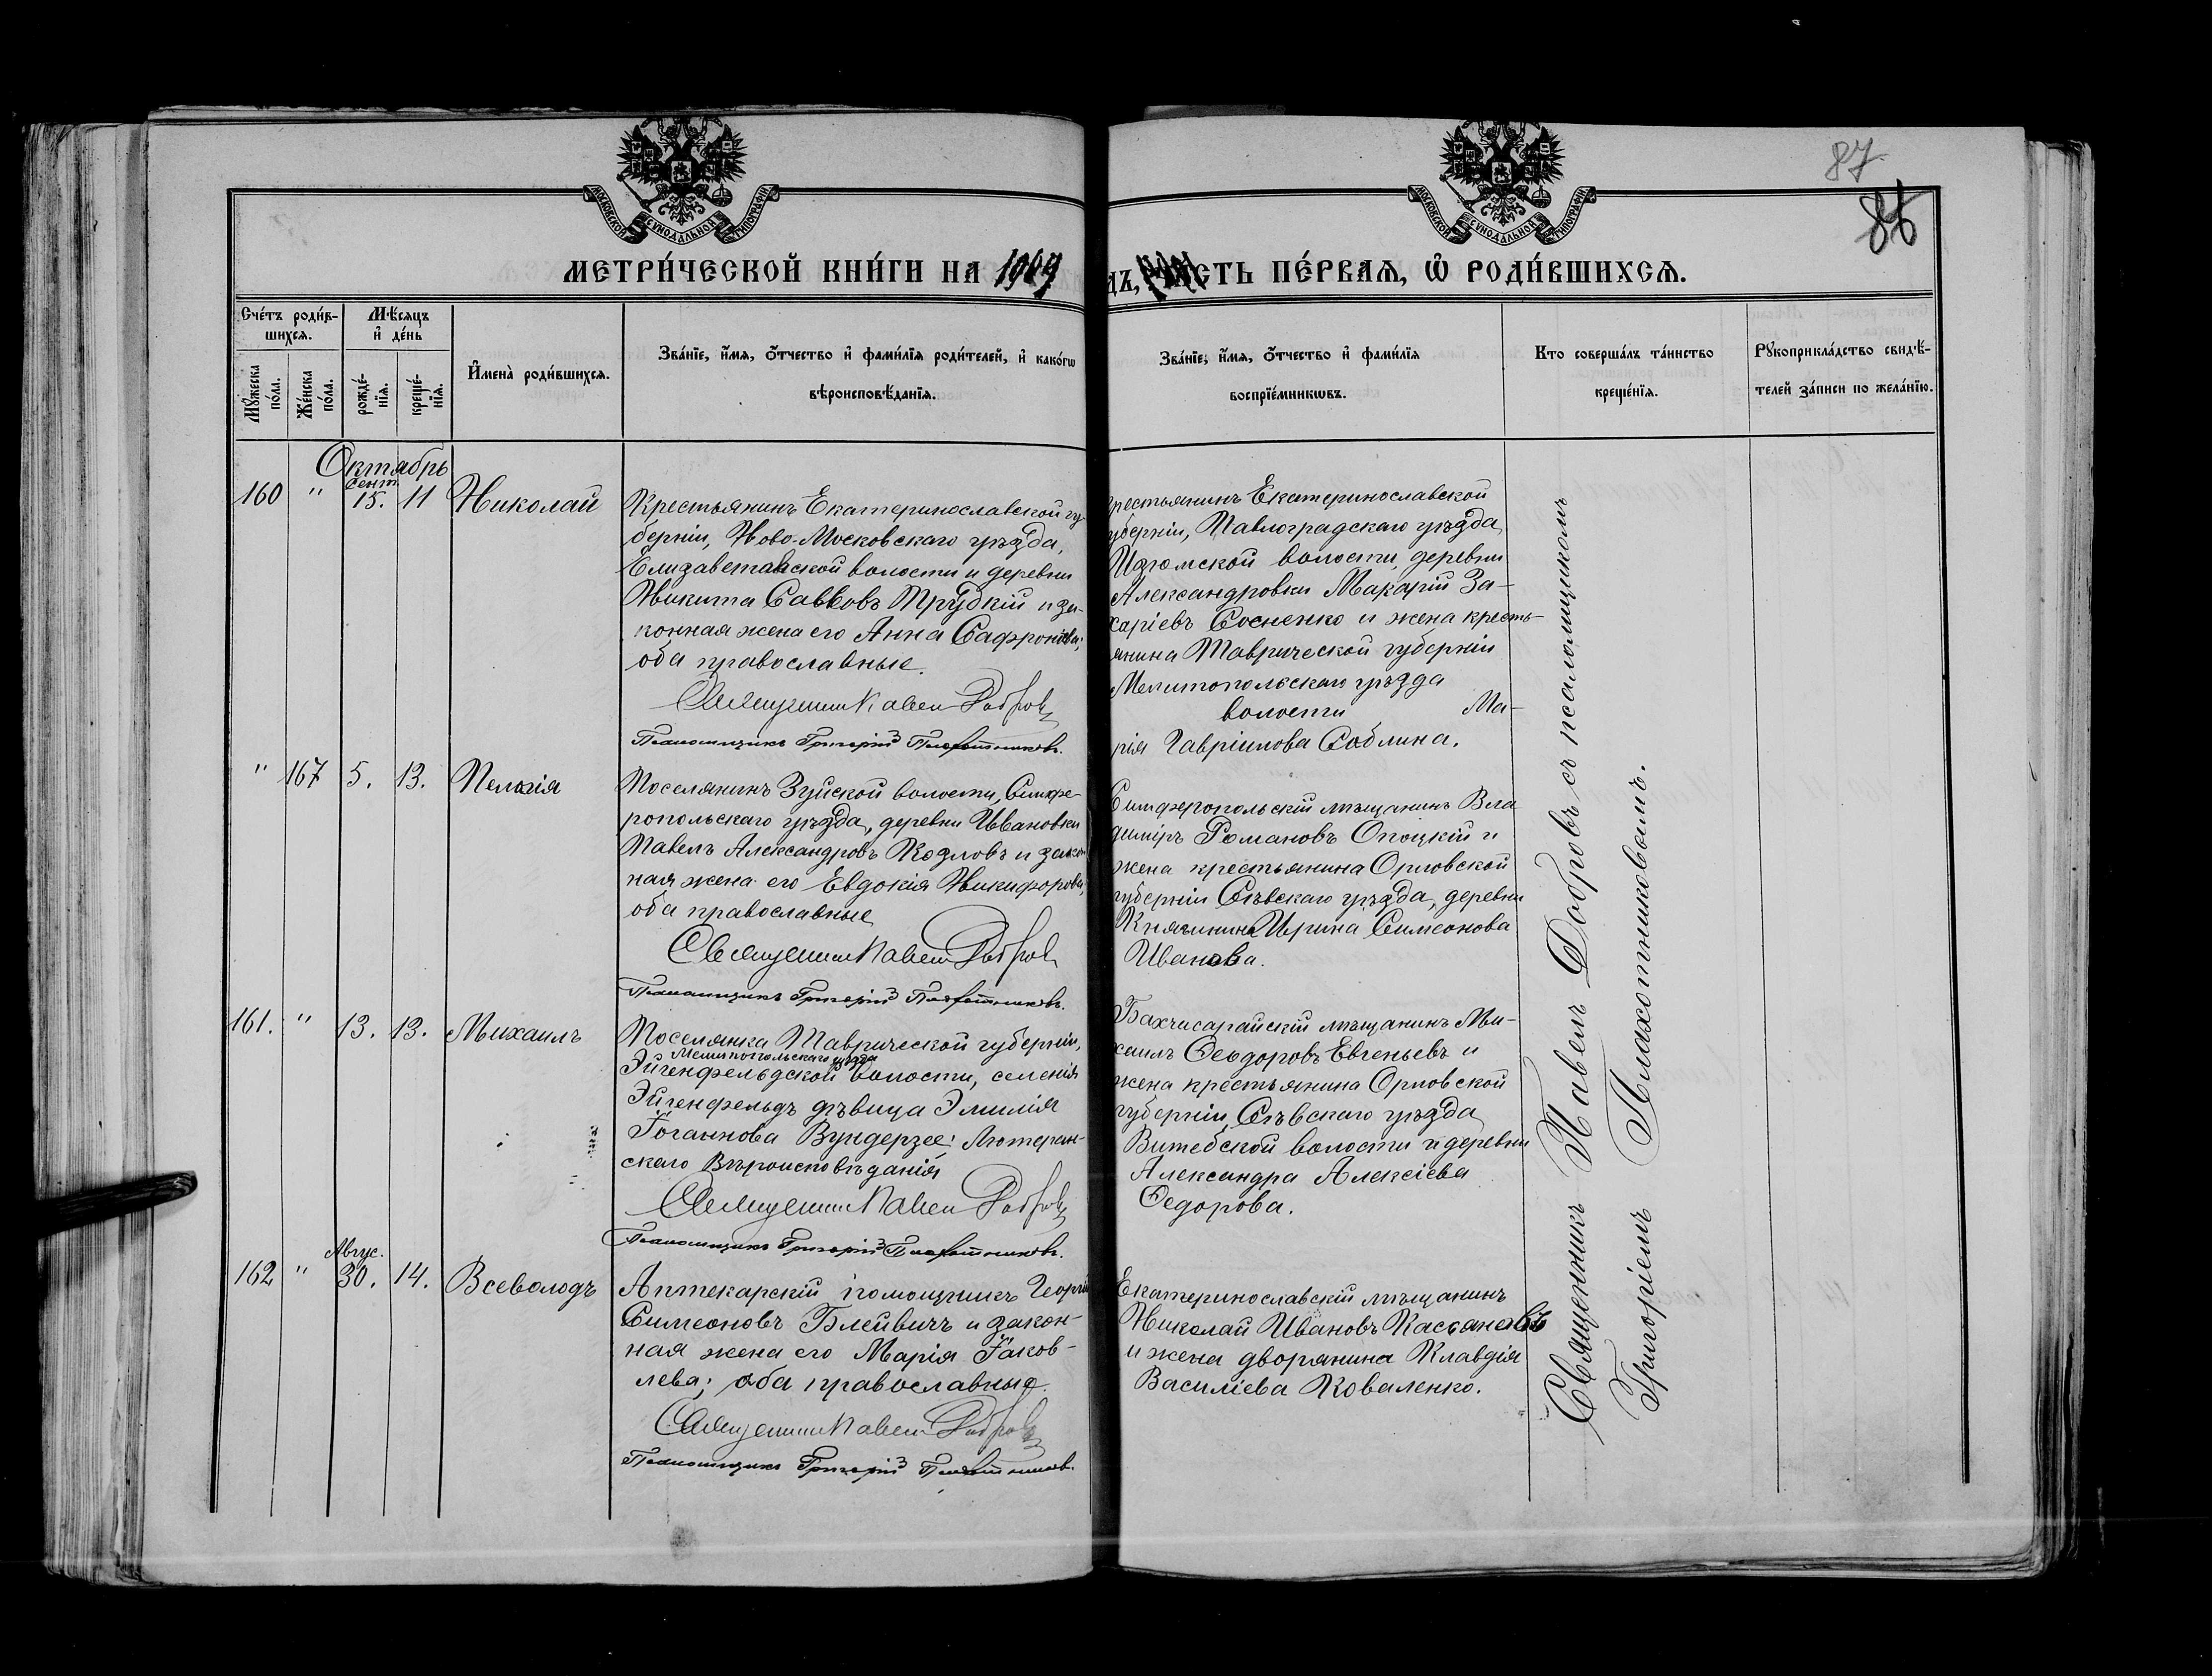 87
86
МОСКОВСКОЙ СѴНОДАЛЬНОЙ ТИПОГРАФІИ
МОСКОВСКОЙ СѴНОДАЛЬНОЙ ТИПОГРАФІИ
МЕТРИ́ЧЕСКОЙ КНИ́ГИ НА 1909
ДЪ, СТЬ ПЕ́РВАЯ, Ѡ҆ РОДИ́ВШИХСЯ.
Счє́тъ роди́в-
шихся.
Мѣ́сяцъ
и҆ де́нь
Мꙋ́жеска по́ла.
Же́нска по́ла.
рожде́-
нїя.
креще́-
нїя.
И҆мена̀ роди́вшихся.
Зва́нїе, и҆́мя, ѻ҆́тчество и҆ фами́лїя роди́телей, и҆ како́гѡ
вѣроисповѣ́данїя.
Зва́нїе, и҆́мя, ѻ҆́тчество и҆ фами́лїя
воспрїе́мникѡвъ.
Кто соверша́лъ та́инство
креще́нїя.
Рꙋкоприкла́дство свидѣ́-
телей за́писи по жела́нїю.
Октябрь
Сент.
160 " 15. 11 Николай
Крестьянинъ Екатеринославской гу-
берніи, Ново-Московскаго уѣзда,
Елизаветовской волости и деревни
Никита Савковъ Трубкій и за-
конная жена его Анна Сафронова;
оба православные.
Священникъ Павелъ Добровъ
Псаломщикъ Григорій Плахотниковъ.
рестьянинъ Екатеринославской
уберніи, Павлоградскаго уѣзда
Изюмской волости, деревни
Александровки Макарій За-
харіевъ Сосненко и жена кресть-
янина Таврической губерніи
Мелитопольскаго уѣзда
волости Ма-
рія Гавріилова Саблина.
" 167 5. 13. Пелагія
Поселянинъ Зуйской волости, Симфе-
ропольскаго уѣзда, деревни Ивановки
Павелъ Александровъ Козловъ и закон
ная жена его Евдокія Никифорова,
оба православные
Священникъ Павелъ Добровъ
Псаломщикъ Григорій Плахотниковъ.
Симферопольскій мѣщанинъ Вла
диміръ Романовъ Опоцкій и
жена крестьянина Орловской
губерніи Сѣвскаго уѣзда, деревни
Княгинина Ирина Симеонова
Иванова.
161. " 13. 13. Михаилъ
Поселянка Таврической губерніи,
Мелитопольскаго уѣзда
Эйгенфельдской волости, селенія
Эйгенфельдъ дѣвица Эмилія
Іоганнова Вундерзее; Лютеран-
скаго Вѣроисповѣданія
Священникъ Павелъ Добровъ
Псаломщикъ Григорій Плахотниковъ.
Бахчисарайскій мѣщанинъ Ми-
хаилъ Ѳеодоровъ Евгеньевъ и
жена крестьянина Орловской
губерніи, Сѣвскаго уѣзда
Витебской волости и деревни
Александра Алексіева
Ѳедорова.
Авгус.
162 " 30. 14. Всеволодъ
Аптекарскій помощникъ Георгій
Симеоновъ Блейвичъ и закон-
ная жена его Марія Іаков-
лева; оба православные.
Священникъ Павелъ Добровъ
Псаломщикъ Григорій Плахотниковъ.
Екатеринославскій мѣщанинъ
Николай Ивановъ Касьяновъ
и жена дворянина Клавдія
Василіева Коваленко.
Священникъ Павелъ Добровъ съ псаломщикомъ
Григоріемъ Плахотниковымъ.